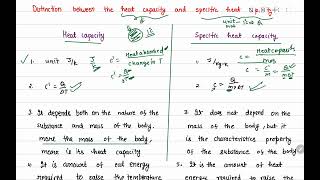 Distinction between the heat capacity and specific heat
Heat capacity
Specific heat capacity
1. unit J/K
c' = Heat absorbed / change in T
c' = Q/ΔT
1. J/kg·K
c = Heat capacity / mass
2. c' = Q/ΔT
2. c = Q/mΔT
3. It depends both on the nature of the
substance and mass of the body,
more the mass of the body,
more is its heat capacity
3. It does not depend on the
mass of the body, but it
is the characteristics property
of the substance of the body
4. It is amount of heat energy
required to raise the temperature
4. It is the amount of heat
energy required to raise the